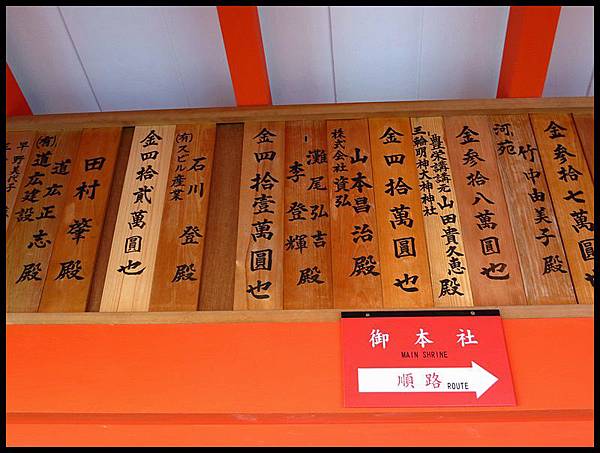 金参拾七萬圓也
河苑
竹中由美子殿
金参拾八萬圓也
豊栄講講元
三輪明神大神神社
山田貴久恵殿
金四拾萬圓也
株式会社資弘
山本昌治殿
灘尾弘吉
李登輝殿
金四拾壹萬圓也
石川登殿
(有)スビル産業
金四拾貳萬圓也
田村肇殿
道広正志殿
(有)道広建設
早野美代子殿
御本社
MAIN SHRINE
順路 ROUTE